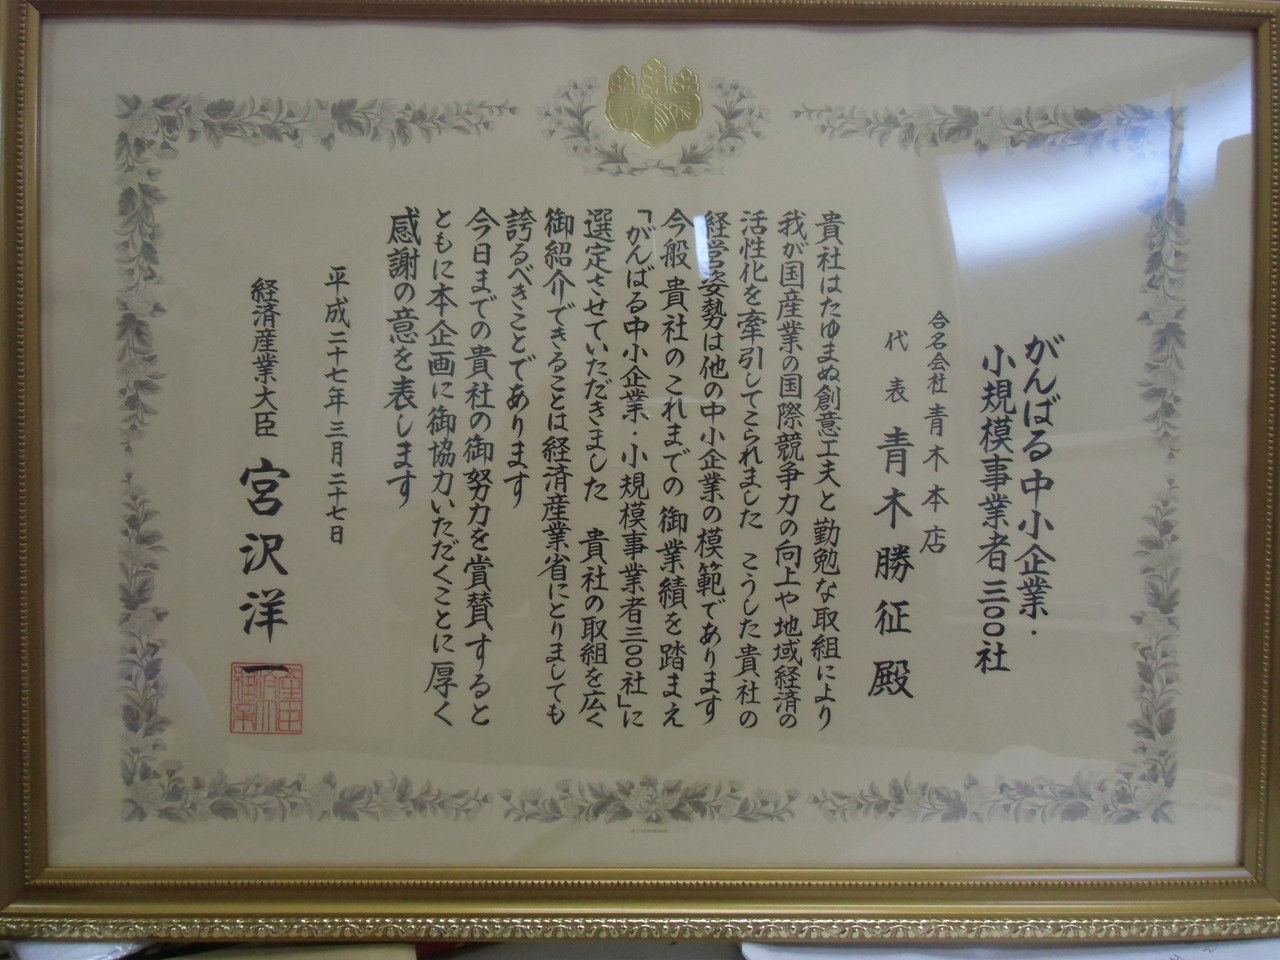 がんばる中小企業・
小規模事業者三〇〇社
合名会社 青木本店
代表 青木勝征殿
貴社はたゆまぬ創意工夫と勤勉な取組により
我が国産業の国際競争力の向上や地域経済の
活性化を牽引してこられました こうした貴社の
経営姿勢は他の中小企業の模範であります
今般 貴社のこれまでの御業績を踏まえ
「がんばる中小企業・小規模事業者三〇〇社」に
選定させていただきました 貴社の取組を広く
御紹介できることは経済産業省にとりましても
誇るべきことであります
今日までの貴社の御努力を賞賛すると
ともに本企画に御協力いただくことに厚く
感謝の意を表します
平成二十七年三月二十七日
経済産業大臣 宮沢洋一